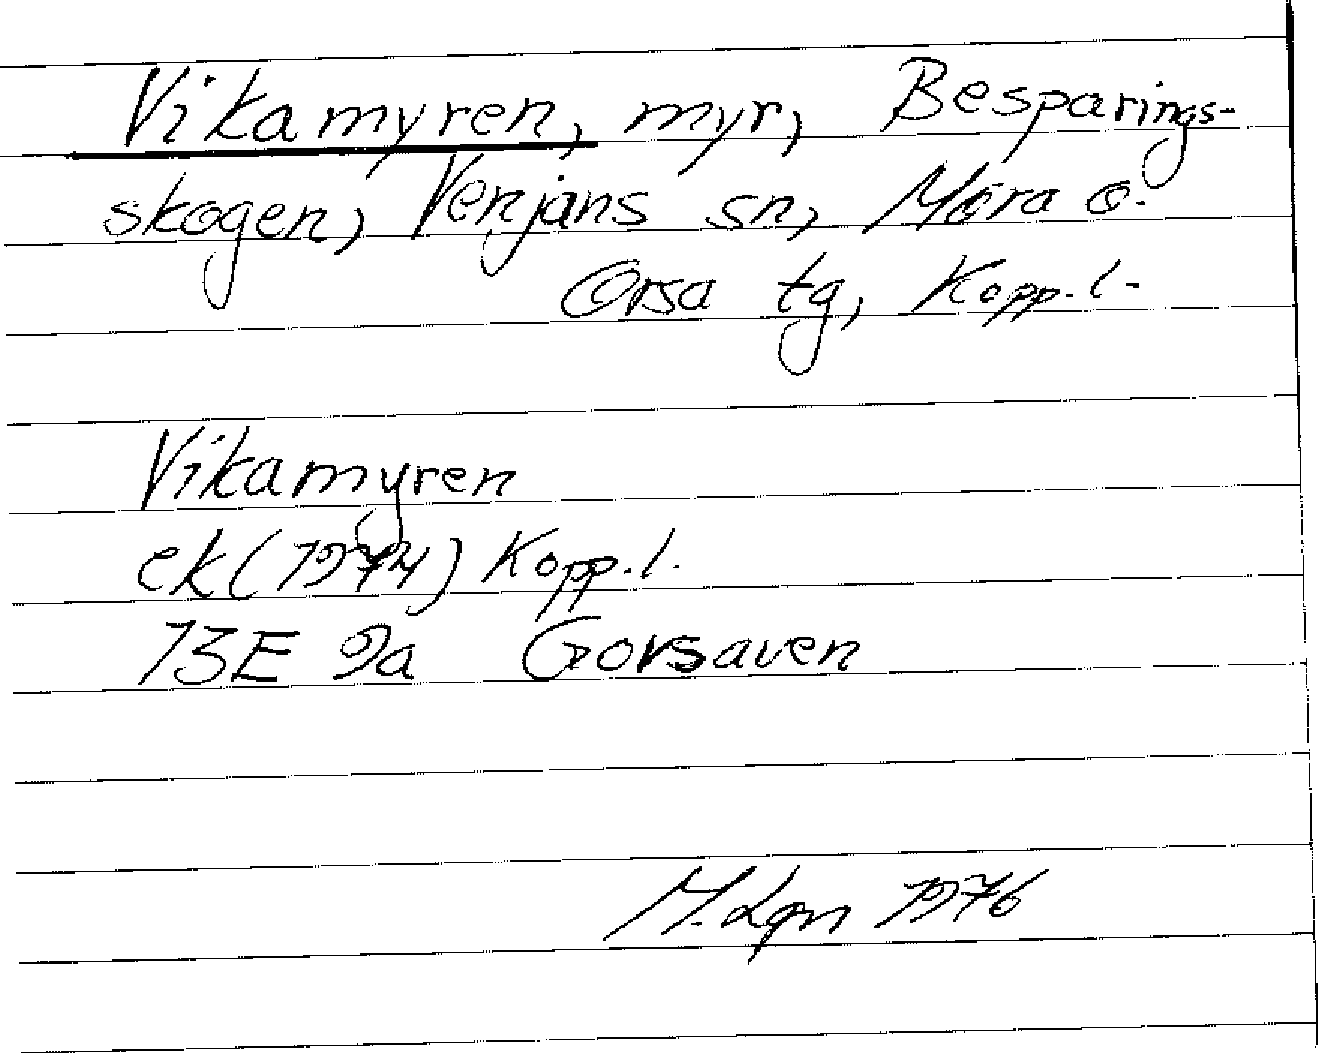 Vikamyren, myr, Besparings-
skogen, Venjans sn, Mora o.
Orsa tg, Kopp.l.
Vikamyren
ek (1974) Kopp.l.
13E 9a Gorsaven
M. Lgn 1976